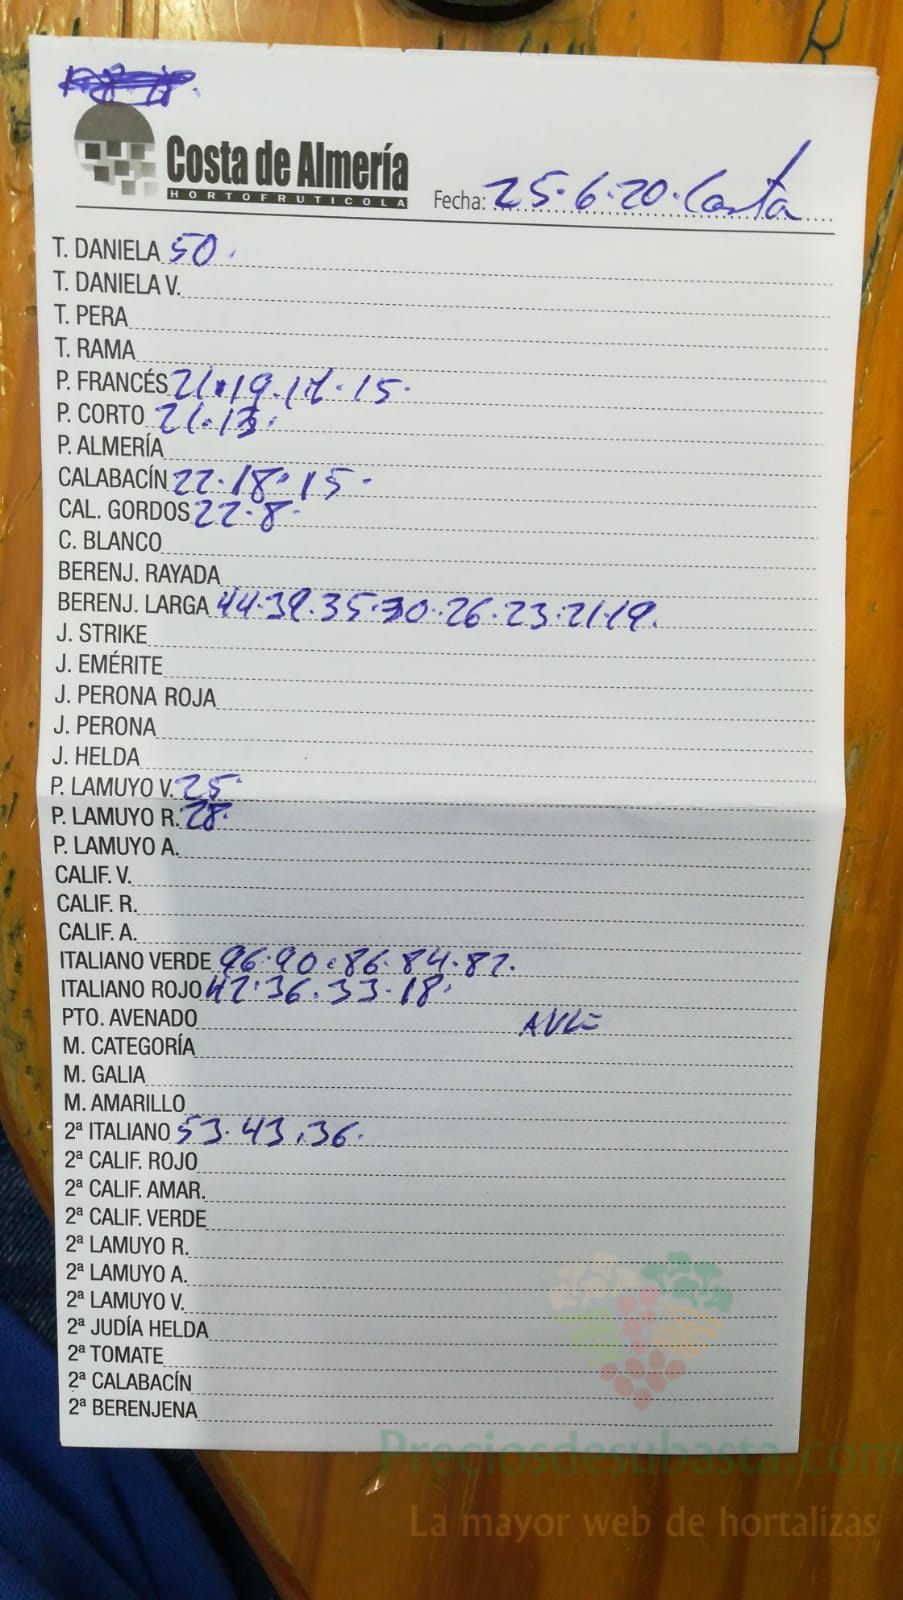 Costa de Almería
HORTOFRUTICOLA
Fecha: 25.6.20. Costa
T. DANIELA 50.
T. DANIELA V.
T. PERA
T. RAMA
P. FRANCÉS 21.19.17.15.
P. CORTO 21.13.
P. ALMERÍA
CALABACÍN 22.18.15.
CAL. GORDOS 22.8.
C. BLANCO
BERENJ. RAYADA
BERENJ. LARGA 44.39.35.30.26.23.21.19.
J. STRIKE
J. EMÉRITE
J. PERONA ROJA
J. PERONA
J. HELDA
P. LAMUYO V. 25.
P. LAMUYO R. 28.
P. LAMUYO A.
CALIF. V.
CALIF. R.
CALIF. A.
ITALIANO VERDE 96.90.86.84.82.
ITALIANO ROJO 42.36.33.18.
PTO. AVENADO
M. CATEGORÍA
M. GALIA
M. AMARILLO
2ª ITALIANO 53.43.36.
2ª CALIF. ROJO
2ª CALIF. AMAR.
2ª CALIF. VERDE
2ª LAMUYO R.
2ª LAMUYO A.
2ª LAMUYO V.
2ª JUDÍA HELDA
2ª TOMATE
2ª CALABACÍN
2ª BERENJENA
Preciosdesubasta.com
La mayor web de hortalizas